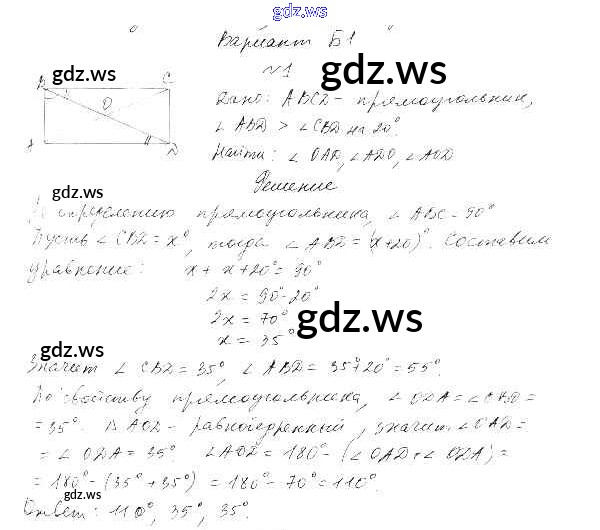 gdz.ws
Вариант Б1
№1
gdz.ws
gdz.ws
B C
O
A D
Дано: ABCD - прямоугольник,
∠ABD > ∠CBD на 20°.
Найти: ∠OAD, ∠ADO, ∠AOD
Решение
gdz.ws
По определению прямоугольника, ∠ABC = 90°
Пусть ∠CBD = x°, тогда ∠ABD = (x+20)°. Составим
уравнение: x + x + 20° = 90°
2x = 90° - 20°
2x = 70°
x = 35°
gdz.ws
gdz.ws
Значит ∠CBD = 35°, ∠ABD = 35°+20° = 55°.
По свойству прямоугольника, ∠ODA = ∠CBD =
= 35°. ΔAOD - равнобедренный, значит ∠OAD =
= ∠ODA = 35°. ∠AOD = 180° - (∠OAD + ∠ODA) =
= 180° - (35° + 35°) = 180° - 70° = 110°.
gdz.ws
Ответ: 110°, 35°, 35°.